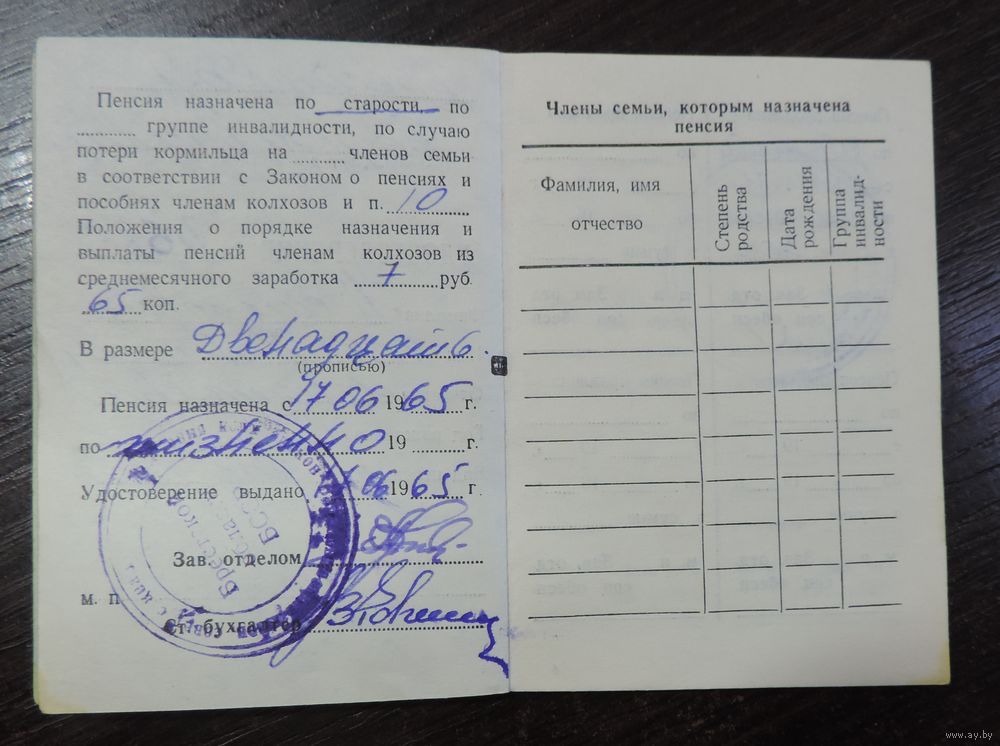 Пенсия назначена по старости, по
......... группе инвалидности, по случаю
потери кормильца на ........ членов семьи
в соответствии с Законом о пенсиях и
пособиях членам колхозов и п. 10
Положения о порядке назначения и
выплаты пенсий членам колхозов из
среднемесячного заработка 7 руб.
65 коп.
В размере Двенадцать
(прописью)
Пенсия назначена с 17 06 1965 г.
по жизненно 19 г.
Удостоверение выдано 17.06 1965 г.
Зав. отделом
м. п.
Ст. бухгалтер
Брестской
области
БССР
Члены семьи, которым назначена
пенсия
Фамилия, имя
отчество
Степень
родства
Дата
рождения
Группа
инвалид-
ности
www.ay.by